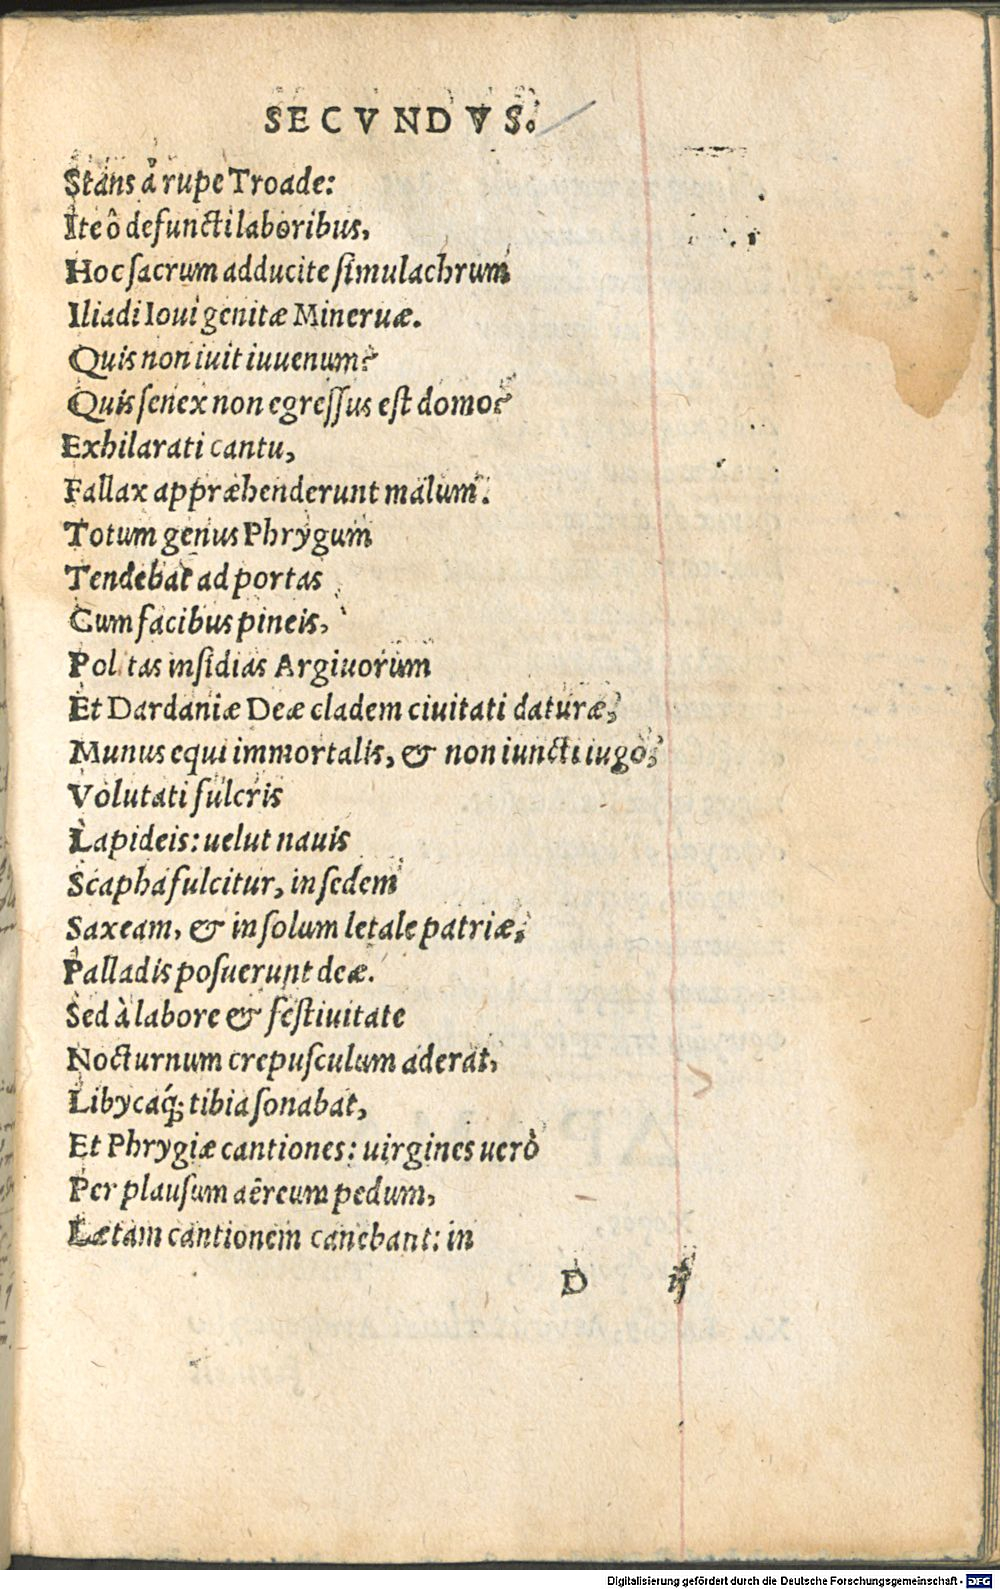 SECVNDVS.
Stans à rupe Troade:
Ite ô defuncti laboribus,
Hoc sacrum adducite simulachrum
Iliadi Ioui genitæ Mineruæ.
Quis non iuit iuuenum?
Quis senex non egressus est domo?
Exhilarati cantu,
Fallax appræhenderunt malum.
Totum genus Phrygum
Tendebat ad portas
Cum facibus pineis,
Pol tas insidias Argiuorum
Et Dardaniæ Deæ cladem ciuitati daturæ,
Munus equi immortalis, & non iuncti iugo,
Volutati fulcris
Lapideis: uelut nauis
Scapha fulcitur, in sedem
Saxeam, & in solum letale patriæ,
Palladis posuerunt deæ.
Sed à labore & festiuitate
Nocturnum crepusculum aderat,
Libycaq́; tibia sonabat,
Et Phrygiæ cantiones: uirgines uerò
Per plausum aëreum pedum,
Lætam cantionem canebant: in
D ij
Digitalisierung gefördert durch die Deutsche Forschungsgemeinschaft - DFG